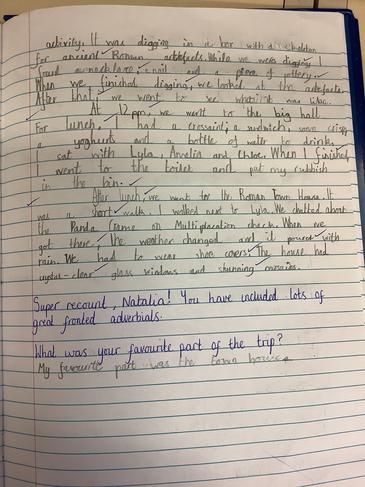 activity. It was digging in a box with a skeleton
for ancient Roman artefacts. While we were digging I
found a necklace, a nail and a piece of pottery.
When we finished digging, we looked at the artefacts.
After that, we went to see what it was like.
At 12 pm, we went to the big hall
For lunch, I had a crossaint, a sandwich, some crisps,
a yoghurt and a bottle of water to drink.
I sat with Lyla, Amelia and Chloe. When I finished,
I went to the toilet and put my rubbish
in the bin.
After lunch, we went to the Roman Town House. It
was a short walk. I walked next to Lyla. We chatted about
the Panda Game on Multiplacation check. When we
got there, the weather changed and it poured with
rain. We had to wear shoe covers. The house had
crystal-clear glass windows and stunning mosaics.
Super recount, Natalia! You have included lots of
great fronted adverbials.
What was your favourite part of the trip?
My favourite part was the town house.